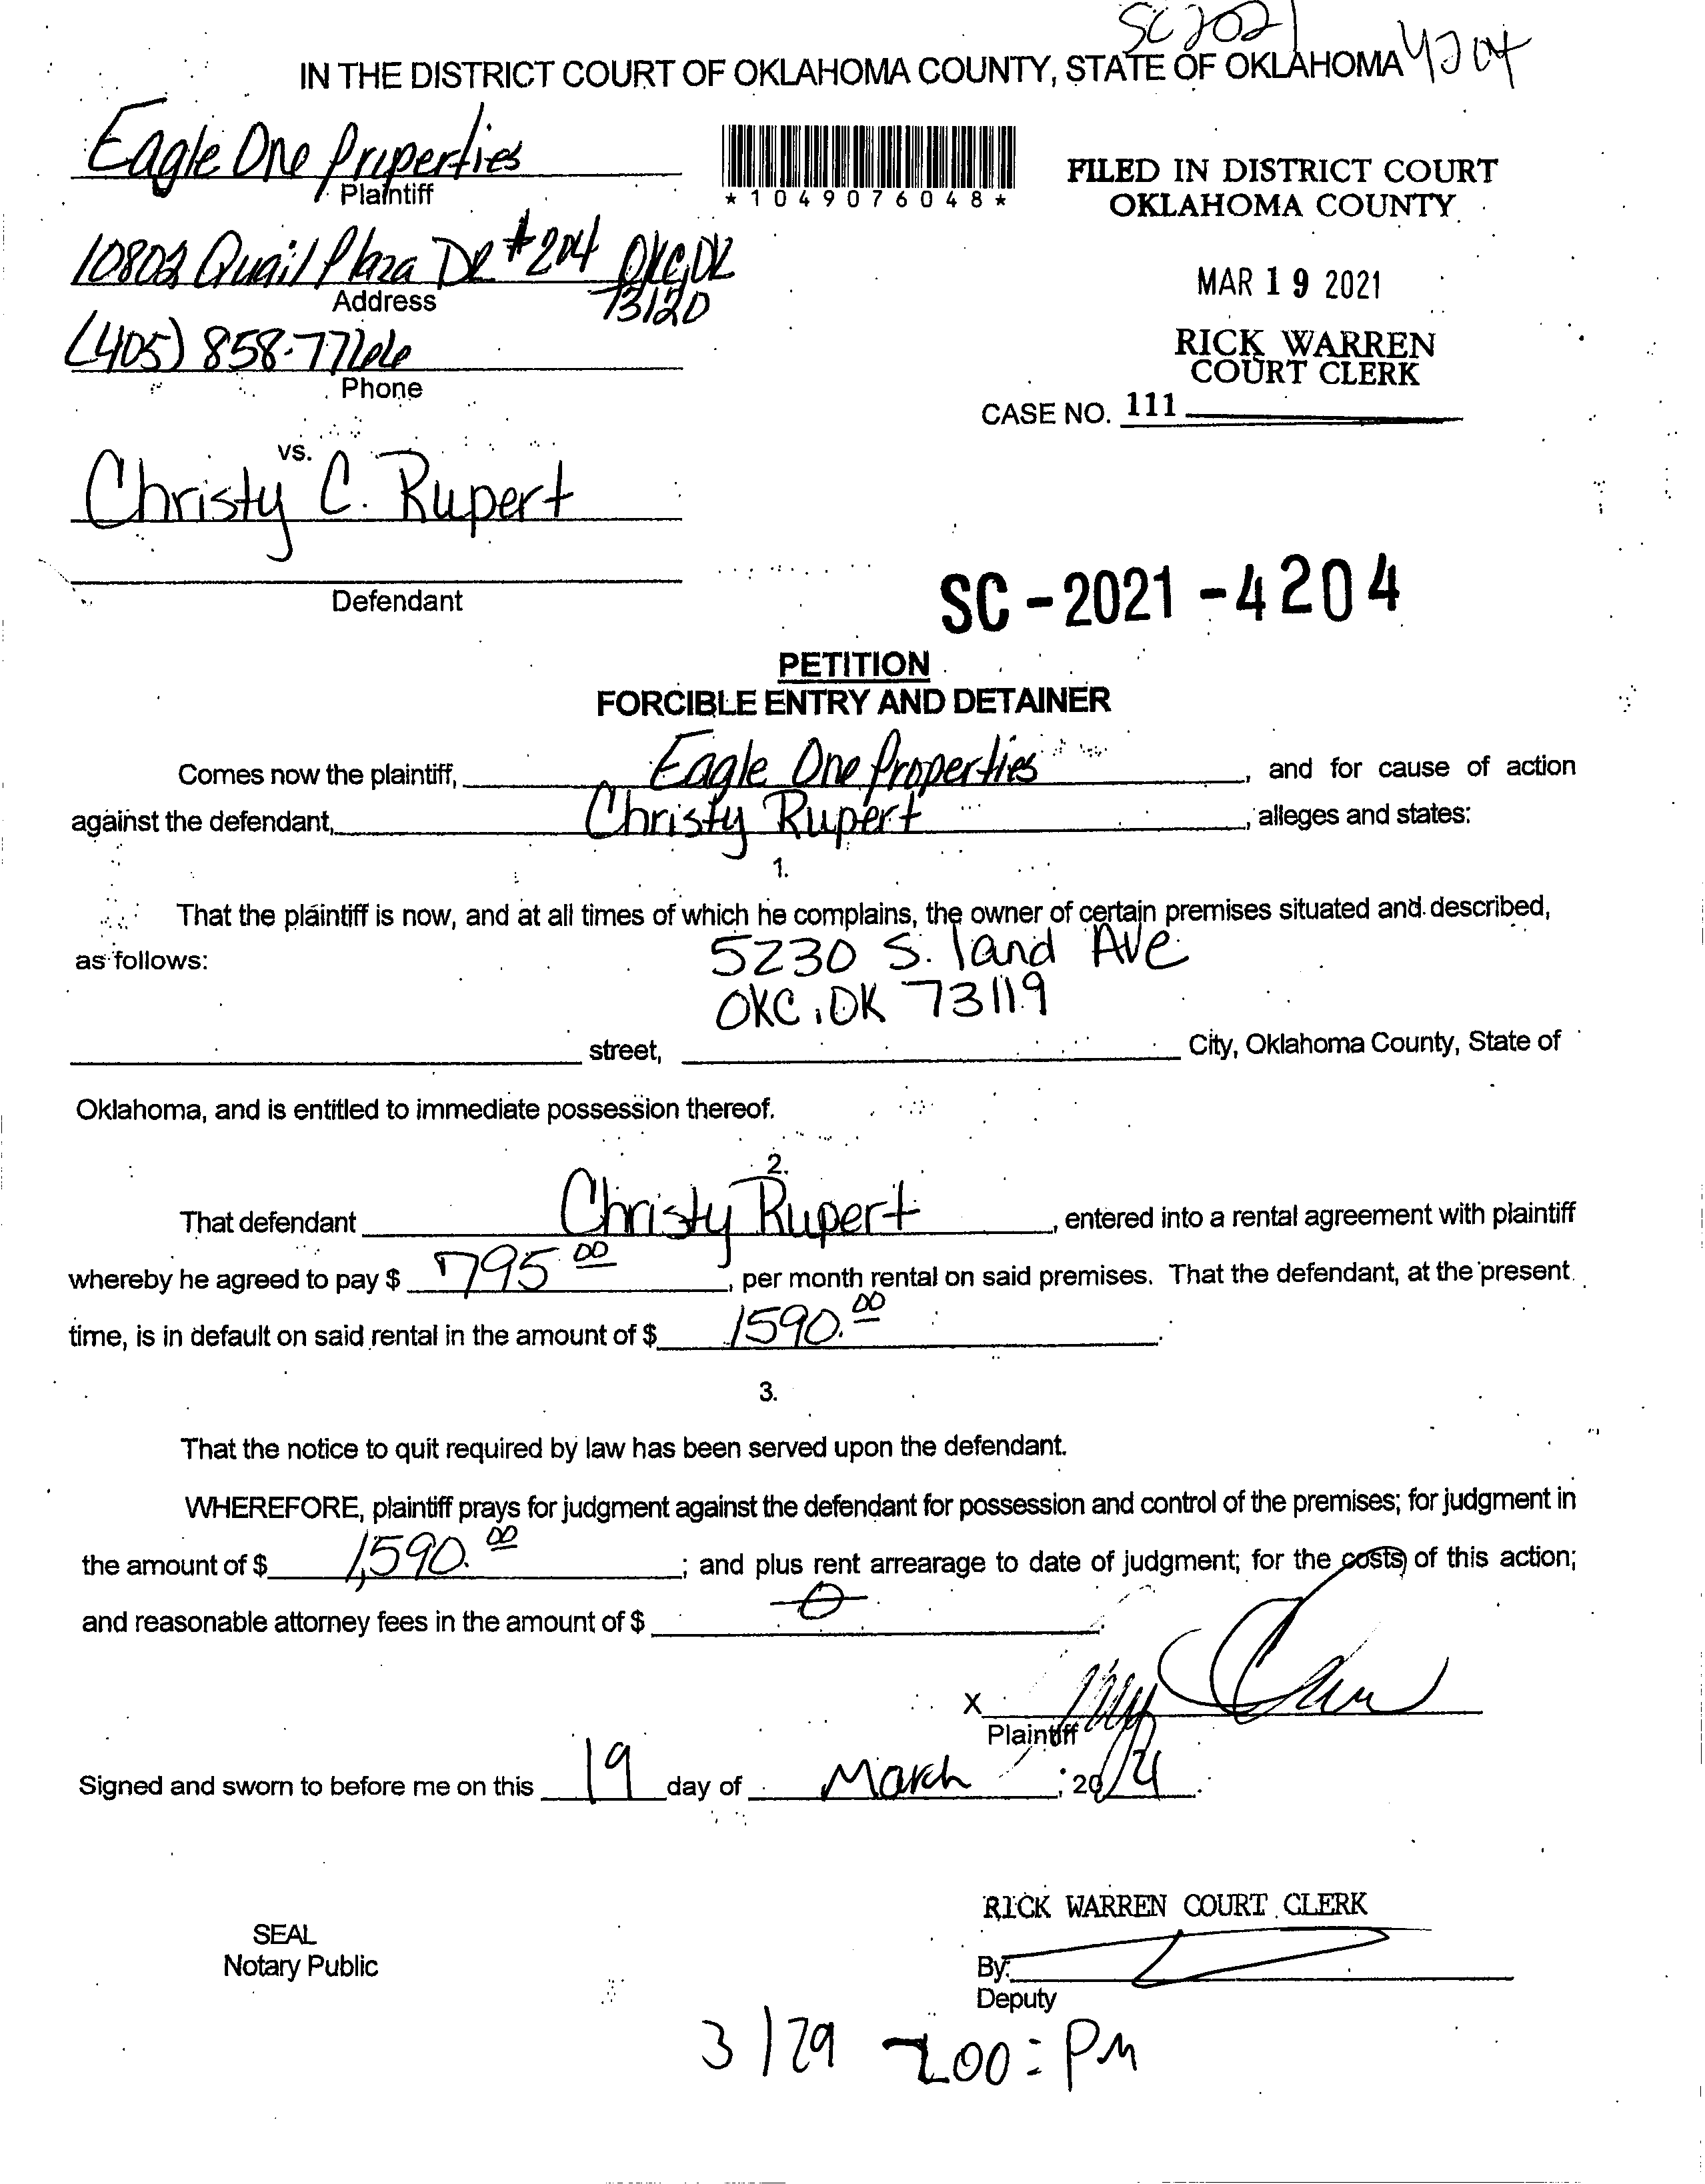 SC 2021 4204
IN THE DISTRICT COURT OF OKLAHOMA COUNTY, STATE OF OKLAHOMA
Eagle One Properties
Plaintiff
*1049076048*
FILED IN DISTRICT COURT
OKLAHOMA COUNTY
10802 Quail Plaza DR #204 OKC, OK
73120
Address
MAR 19 2021
(405) 858-7766
Phone
RICK WARREN
COURT CLERK
CASE NO. 111
vs.
Christy C. Rupert
Defendant
SC-2021-4204
PETITION
FORCIBLE ENTRY AND DETAINER
Comes now the plaintiff, Eagle One Properties, and for cause of action
against the defendant, Christy Rupert, alleges and states:
1.
That the plaintiff is now, and at all times of which he complains, the owner of certain premises situated and described,
as follows: 5230 S. land Ave
OKC, OK 73119
street, City, Oklahoma County, State of
Oklahoma, and is entitled to immediate possession thereof.
2.
That defendant Christy Rupert, entered into a rental agreement with plaintiff
whereby he agreed to pay $ 795.00, per month rental on said premises. That the defendant, at the present
time, is in default on said rental in the amount of $ 1590.00.
3.
That the notice to quit required by law has been served upon the defendant.
WHEREFORE, plaintiff prays for judgment against the defendant for possession and control of the premises; for judgment in
the amount of $ 1,590.00; and plus rent arrearage to date of judgment; for the costs of this action;
and reasonable attorney fees in the amount of $ 0.
X
Plaintiff
Signed and sworn to before me on this 19 day of March, 2021.
RICK WARREN COURT CLERK
SEAL
Notary Public
By:
Deputy
3/29 200:PM